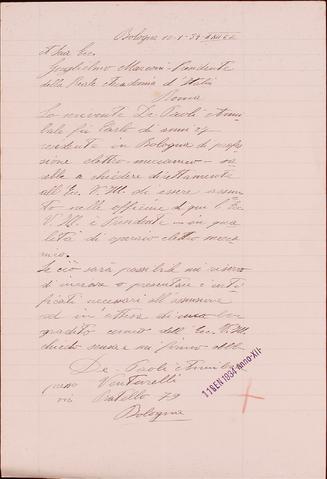 Bologna 10-1-34
A Sua Ecc.
Guglielmo Marconi - Presidente
della Reale Accademia d'Italia
Roma
Lo scrivente De Paoli Anni-
bale fu Carlo di anni 27
residente in Bologna di profes
sione elettro-meccanico -
a chiedere direttamente
all'Ec. V. Ill. di essere assun
to nelle officine di cui l'Ec
V. Ill. è Presidente in qua
lità di operaio elettro mecca
nico.
Se ciò sarà possibile mi riservo
di inviare o presentare i certi
ficati necessari all'assunzione
ed in attesa di un
gradito cenno dell'Ec. V. Ill.
chiedo scusa e mi firmo
De Paoli Annibale
presso Venturelli
via Pratello 79
Bologna
11 GEN 1934 Anno XII